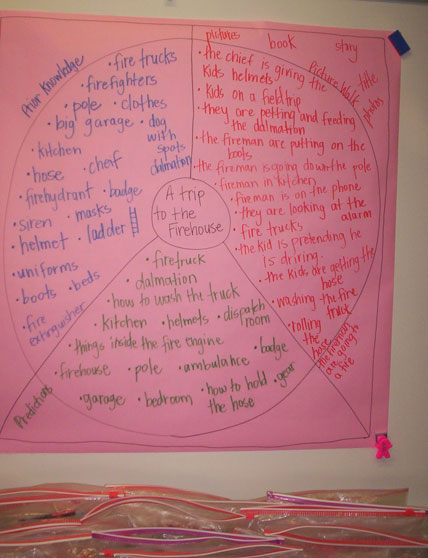 Prior Knowledge
• fire trucks
• firefighters
• pole • clothes
• big garage • dog
with
spots
dalmation
• kitchen
• hose • chef
• firehydrant • badge
• siren • masks
• helmet • ladder
• uniforms
• boots • beds
• fire
extinguisher
A trip
to the
Firehouse
pictures book story
Picture Walk title
photos
• the chief is giving the
kids helmets
• kids on a fieldtrip
• they are petting and feeding
the dalmation
• the fireman are putting on the
boots
• the fireman is going down the pole
• fireman in kitchen
• fireman is on the phone
• they are looking at the
alarm
• fire trucks
• the kid is pretending he
is driving.
• the kids are getting the
hose
• washing the fire
truck
• rolling
the
hose
• the fireman
are going to
a fire
Predictions
• firetruck
• dalmation
• how to wash the truck
• kitchen • helmets • dispatch
room
• things inside the fire engine
• firehouse • pole • ambulance • badge
• garage • bedroom • how to hold • gear
the hose